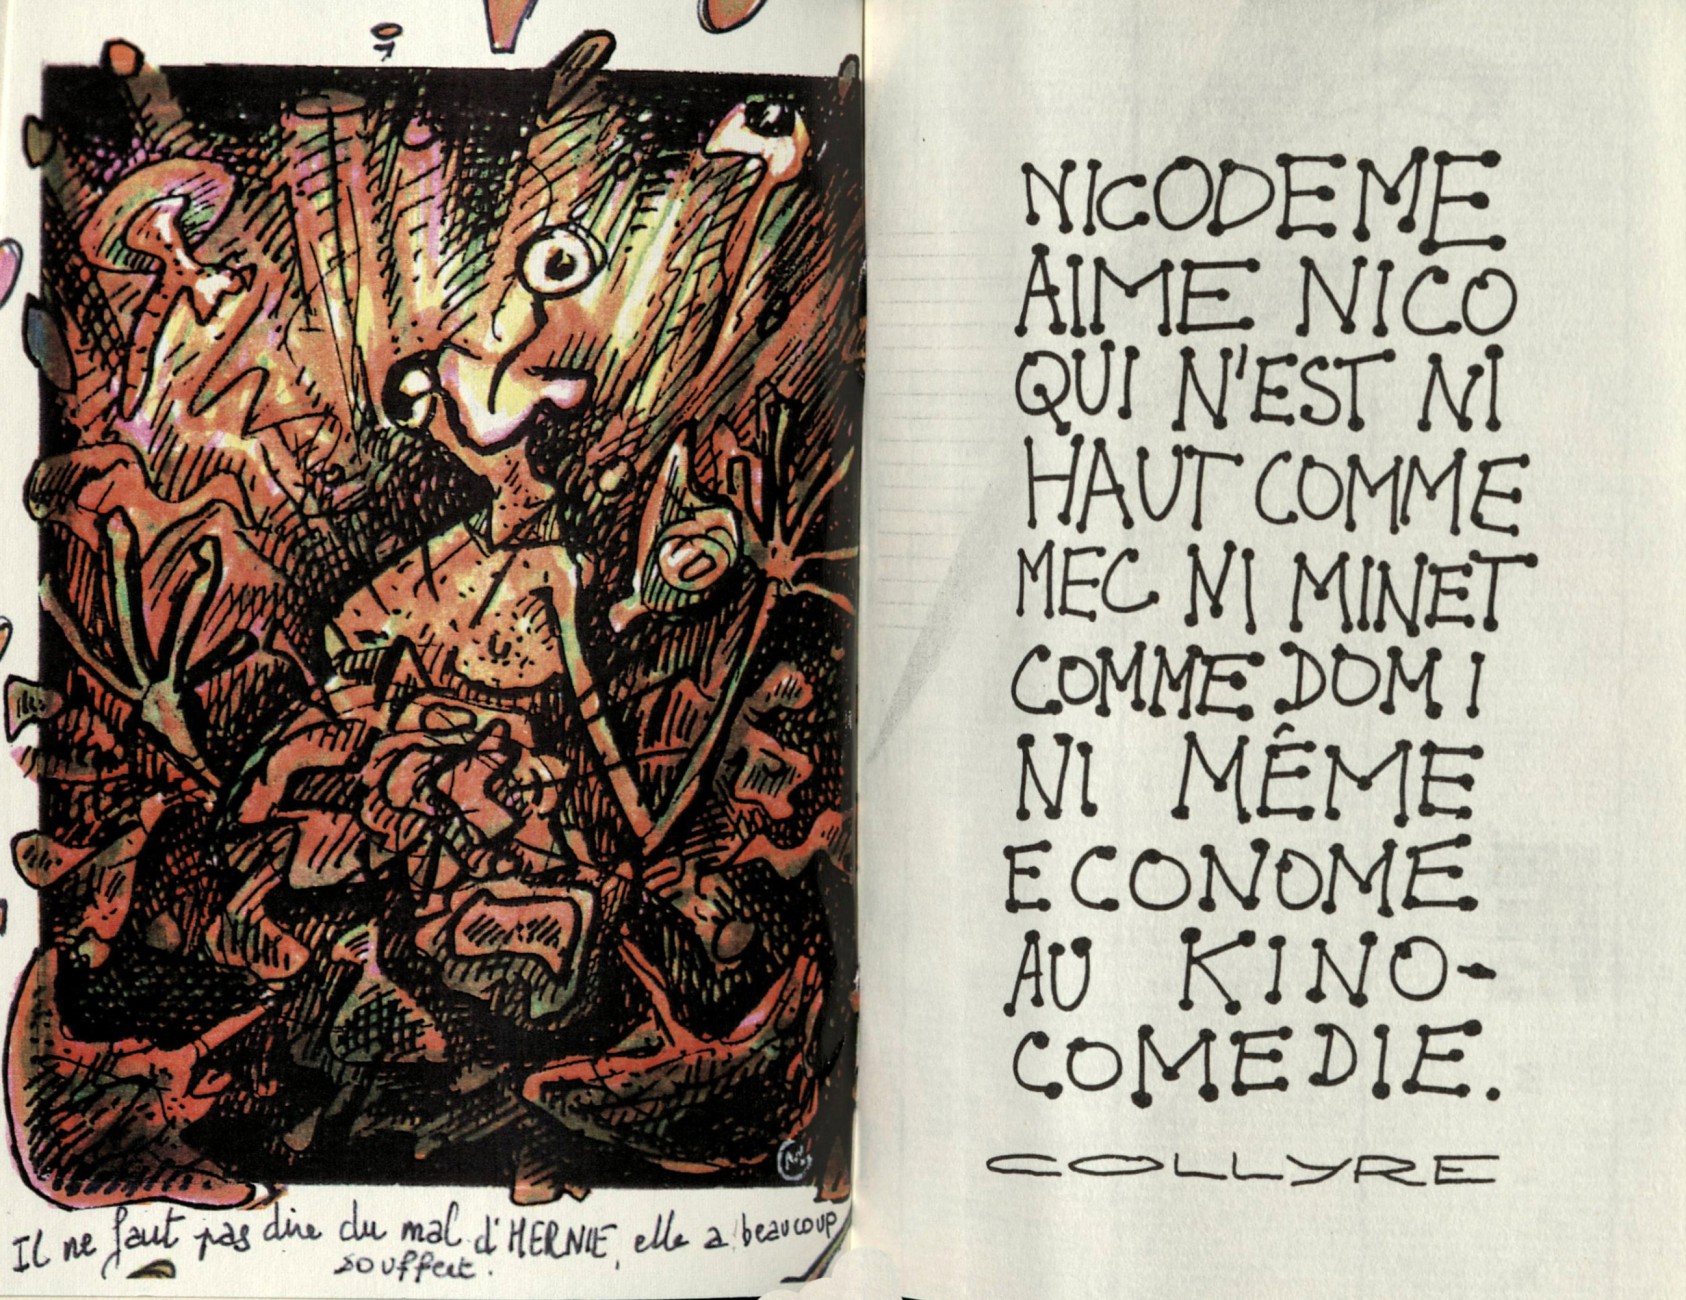 Il ne faut pas dire du mal d'HERNIE, elle a beaucoup
souffert.
NICODEME
AIME NICO
QUI N'EST NI
HAUT COMME
MEC NI MINET
COMME DOMI
NI MÊME
ECONOME
AU KINO-
COMEDIE.
COLLYRE